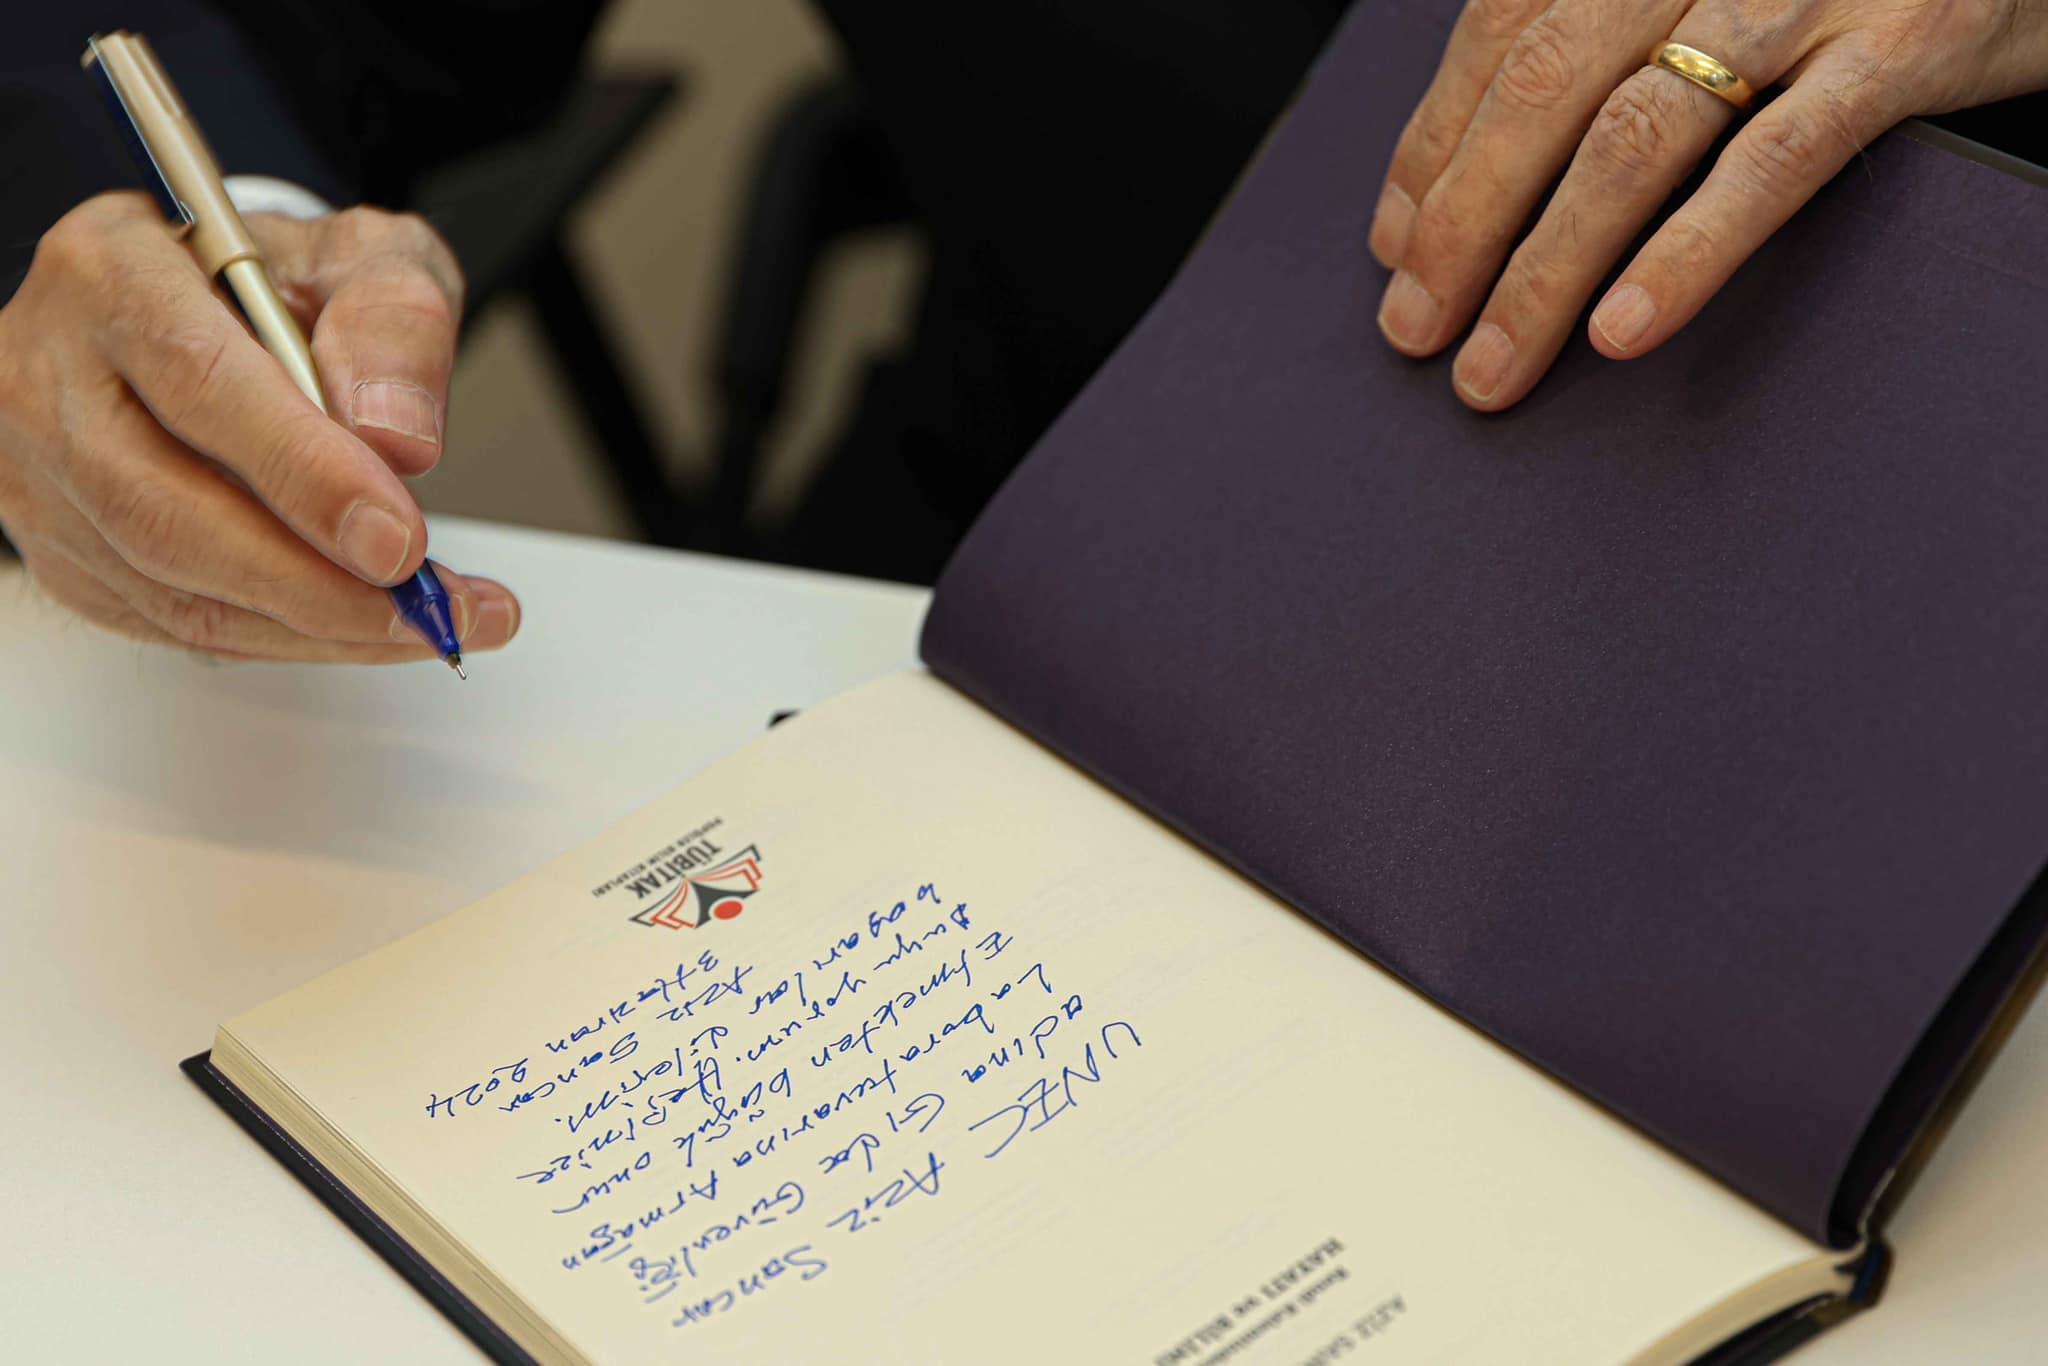 AZİZ SAN
HAYATI ve BİLİMİ
UNIC Aziz Sancar
adına Gıda Güvenliği
Laboratuvarına Armağan
Etmekten büyük onur
duyuyorum. Hepinize
başarılar dilerim.
Aziz Sancar
3 Haziran 2024
TÜBİTAK
POPÜLER BİLİM KİTAPLARI